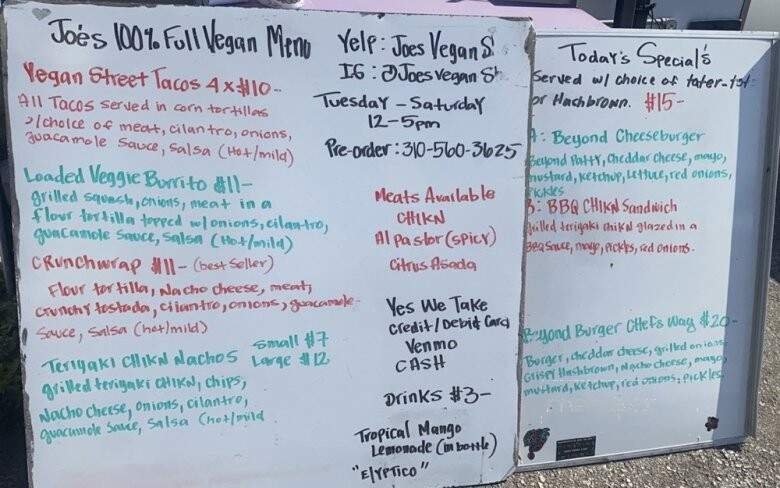 Joe's 100% Full Vegan Menu
Vegan Street Tacos 4 x $10-
All Tacos served in corn tortillas
w/choice of meat, cilantro, onions,
guacamole sauce, salsa (Hot/mild)
Loaded Veggie Burrito $11-
grilled squash, onions, meat in a
flour tortilla topped w/onions, cilantro,
guacamole sauce, salsa (Hot/mild)
CRunchwrap $11- (best seller)
Flour tortilla, Nacho cheese, meat,
crunchy tostada, cilantro, onions, guacamole
sauce, salsa (hot/mild)
Teriyaki CHIKN Nachos small $7
Large $12
grilled teriyaki CHIKN, chips,
Nacho cheese, onions, cilantro,
guacamole sauce, salsa (hot/mild
Yelp: Joes Vegan S
IG: @Joesvegan S
Tuesday - Saturday
12-5pm
Pre-order: 310-560-3625
Meats Available
CHIKN
Al pastor (spicy)
Citrus Asada
Yes We Take
Credit/Debit Card
Venmo
CASH
Drinks $3-
Tropical Mango
Lemonade (in bottle)
"Elyptico"
Today's Special's
Served w/ choice of tater-tot
or Hashbrown. $15-
A: Beyond Cheeseburger
Beyond Patty, cheddar cheese, mayo,
mustard, ketchup, lettuce, red onions,
Pickles
B: BBQ CHIKN Sandwich
grilled teriyaki chikn glazed in a
BBQ sauce, mayo, pickles, red onions.
Beyond Burger Chefs Way $20-
Burger, cheddar cheese, grilled onions
crispy Hashbrown, Nacho cheese, mayo,
mustard, ketchup, red onions, pickles.